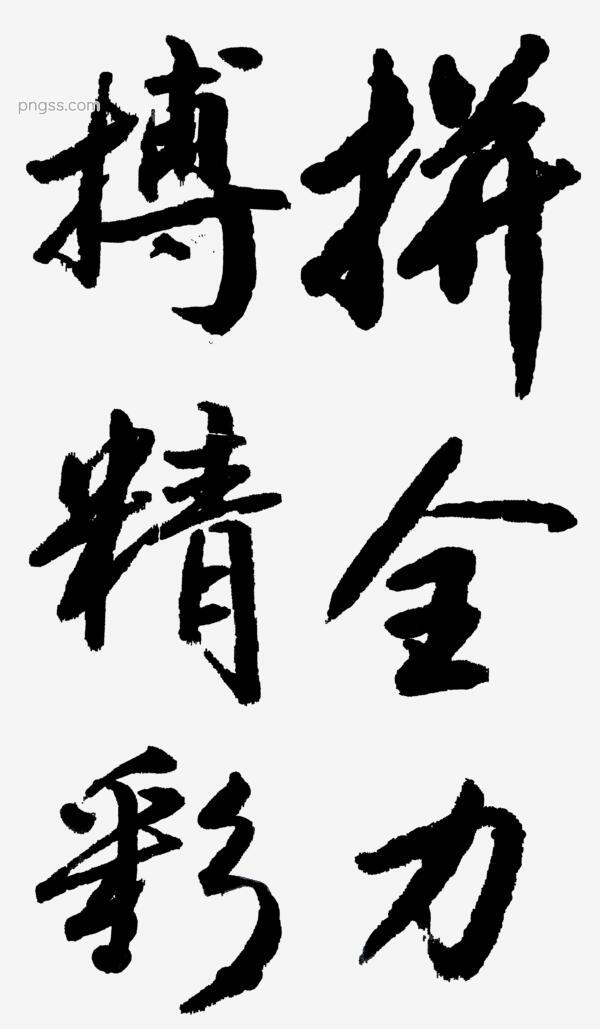 拼全力
搏精彩
pngss.com